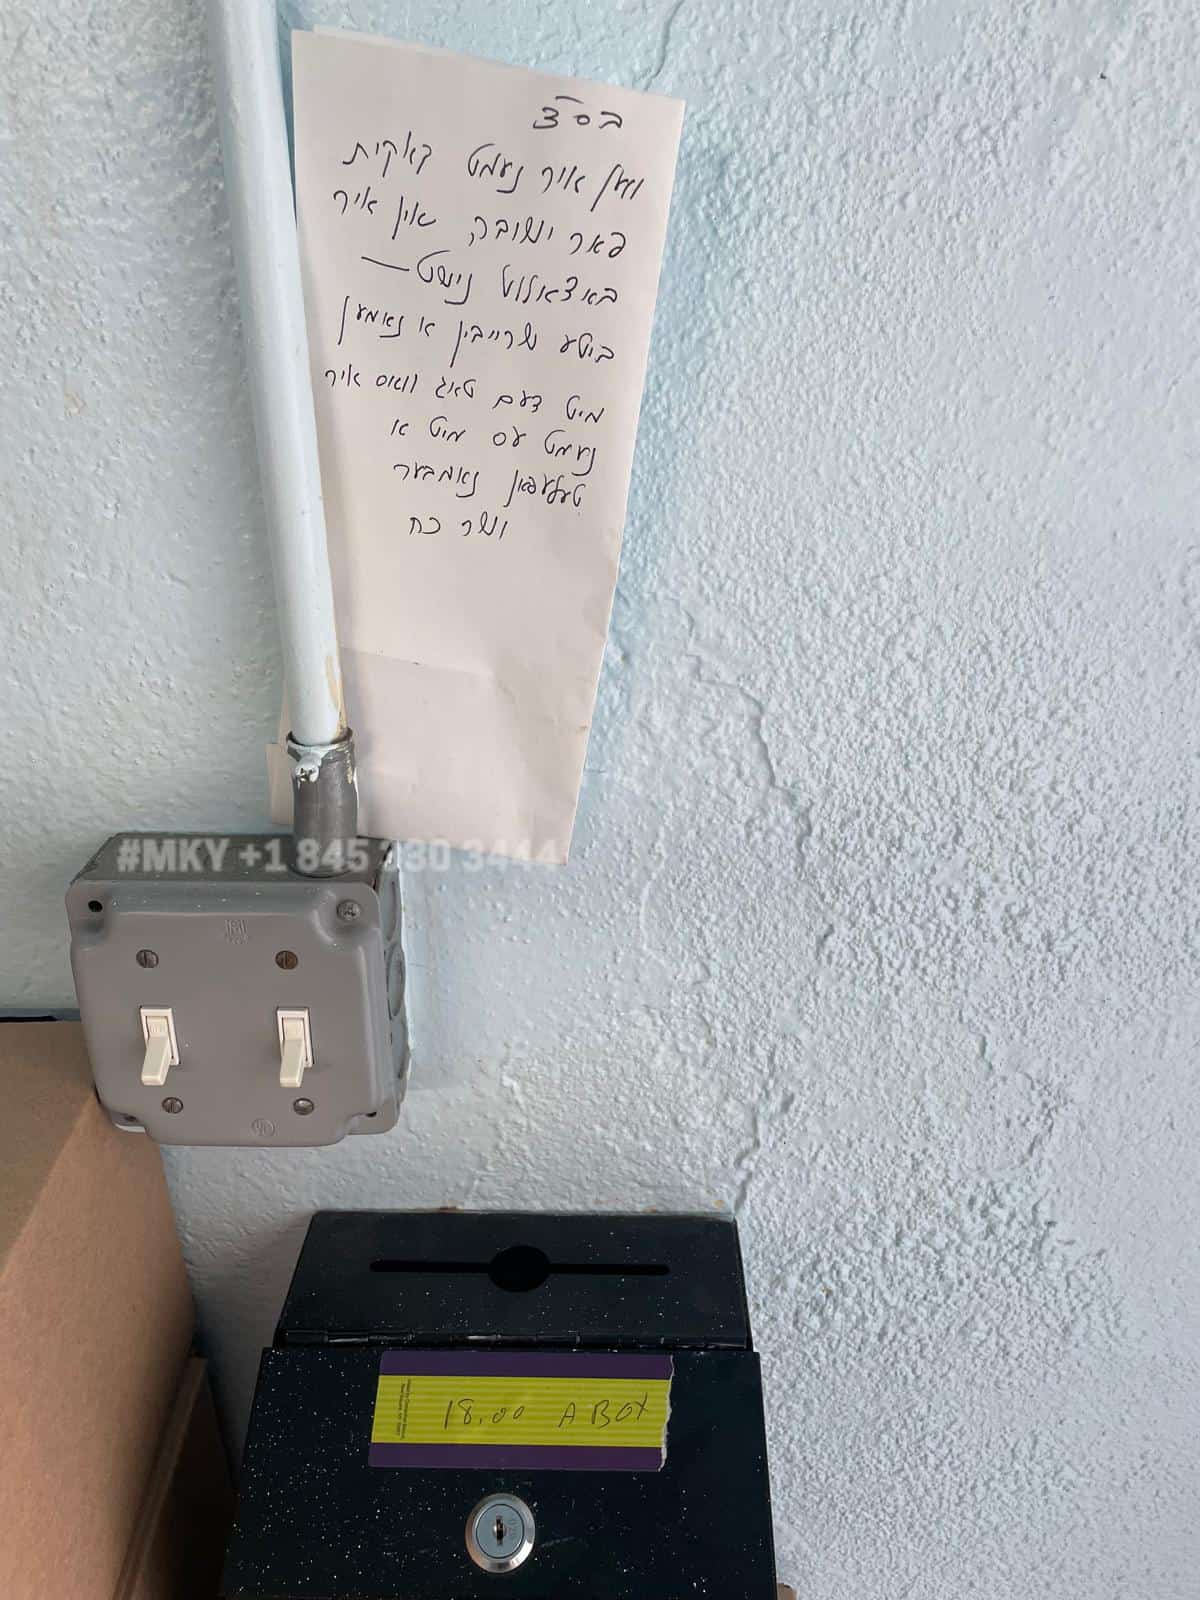 בס"ד
ווען איר נעמט קאקיס
פאר ישיבה און איר
באצאלט נישט —
ביטע שרייבן א נאמען
מיט דעם טאג וואס איר
נעמט עס מיט א
טעלעפאן נאמבער
ישר כח
#MKY +1 845 330 3444
18.00 A BOX